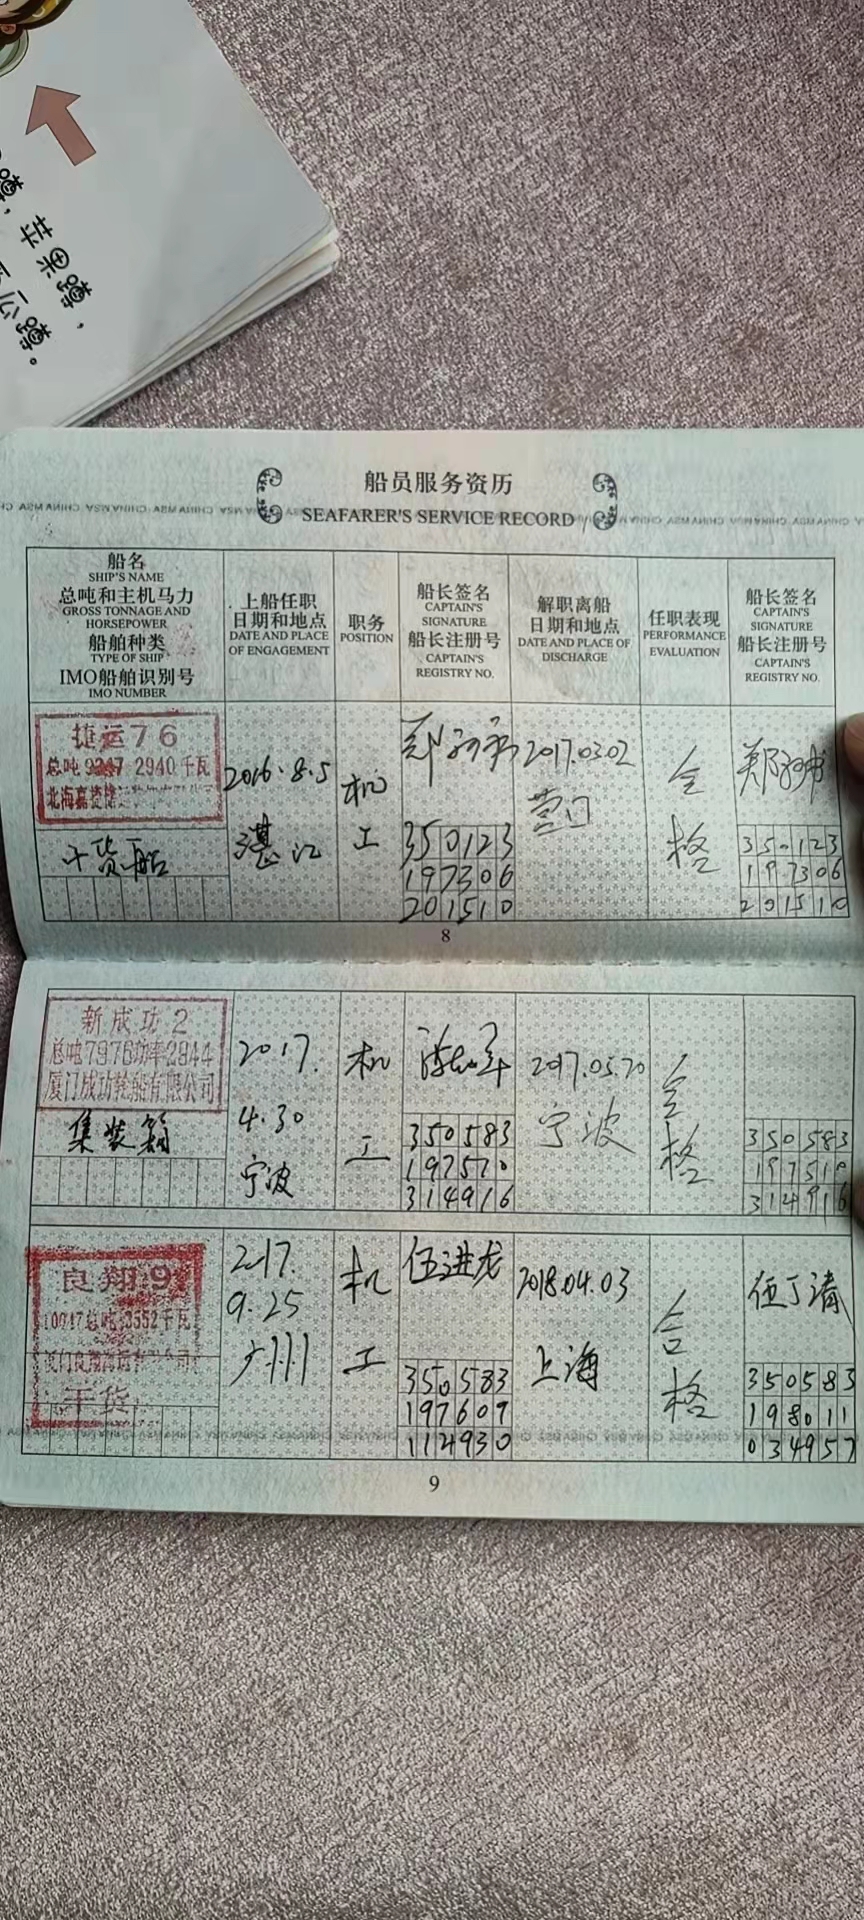 苹果蹲，
蹲。
船员服务资历
SEAFARER'S SERVICE RECORD
船名
SHIP'S NAME
总吨和主机马力
GROSS TONNAGE AND
HORSEPOWER
船舶种类
TYPE OF SHIP
IMO船舶识别号
IMO NUMBER
上船任职
日期和地点
DATE AND PLACE
OF ENGAGEMENT
职务
POSITION
船长签名
CAPTAIN'S
SIGNATURE
船长注册号
CAPTAIN'S
REGISTRY NO.
解职离船
日期和地点
DATE AND PLACE OF
DISCHARGE
任职表现
PERFORMANCE
EVALUATION
船长签名
CAPTAIN'S
SIGNATURE
船长注册号
CAPTAIN'S
REGISTRY NO.
捷运76
总吨9247 2940千瓦
北海嘉捷
干货船
2016.8.5
湛江
机
工
350123
197306
201510
2017.03.02
营口
合
格
350123
197306
201510
8
新成功2
总吨7976功率2944
厦门成功轮船有限公司
集装箱
2017.
4.30
宁波
机
工
350583
197510
314916
2017.05.20
宁波
合
格
350583
197510
314916
良翔9
10047总吨 3552千瓦
厦门良翔海运有限公司
干货
2017.
9.25
广州
机
工
伍进龙
350583
197607
114930
2018.04.03
上海
合
格
350583
198011
034957
9